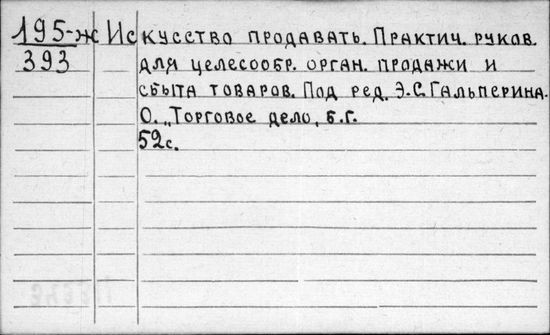 195-ж Искусство продавать. Практич. руков.
393 для целесообр. орган. продажи и
сбыта товаров. Под ред. Э.С. Гальперина.
О. „Торговое дело, б.г.
52с.